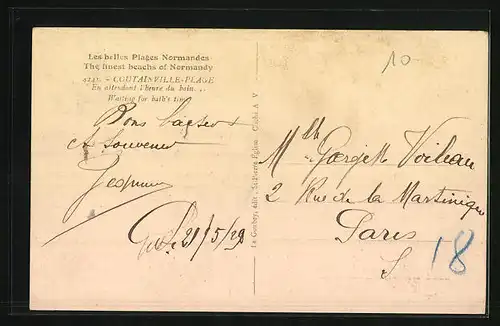 Les belles Plages Normandes
The finest beachs of Normandy
4241. - COUTAINVILLE-PLAGE
En attendant l'heure du bain...
Waiting for bath's time
Bons baisers
et souvenir
21/5/29
Le Goubey, édit., St-Pierre-Eglise - Cliché A. V.
10
Mlle Georgette Voileau
2 Rue de la Martinique
Paris
18